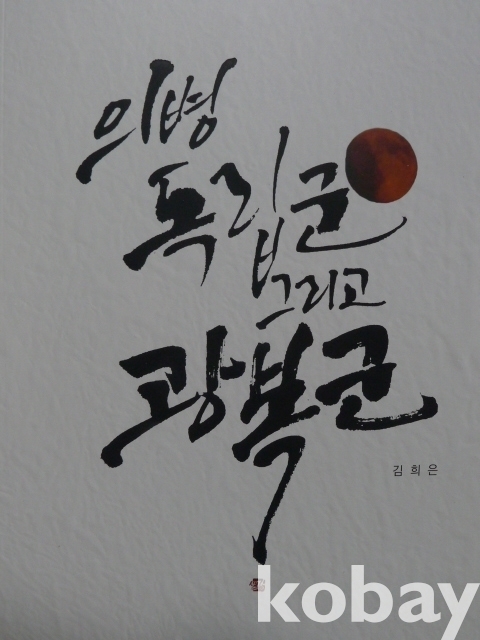 의병
독립군
그리고
광복군
김희은
kobay